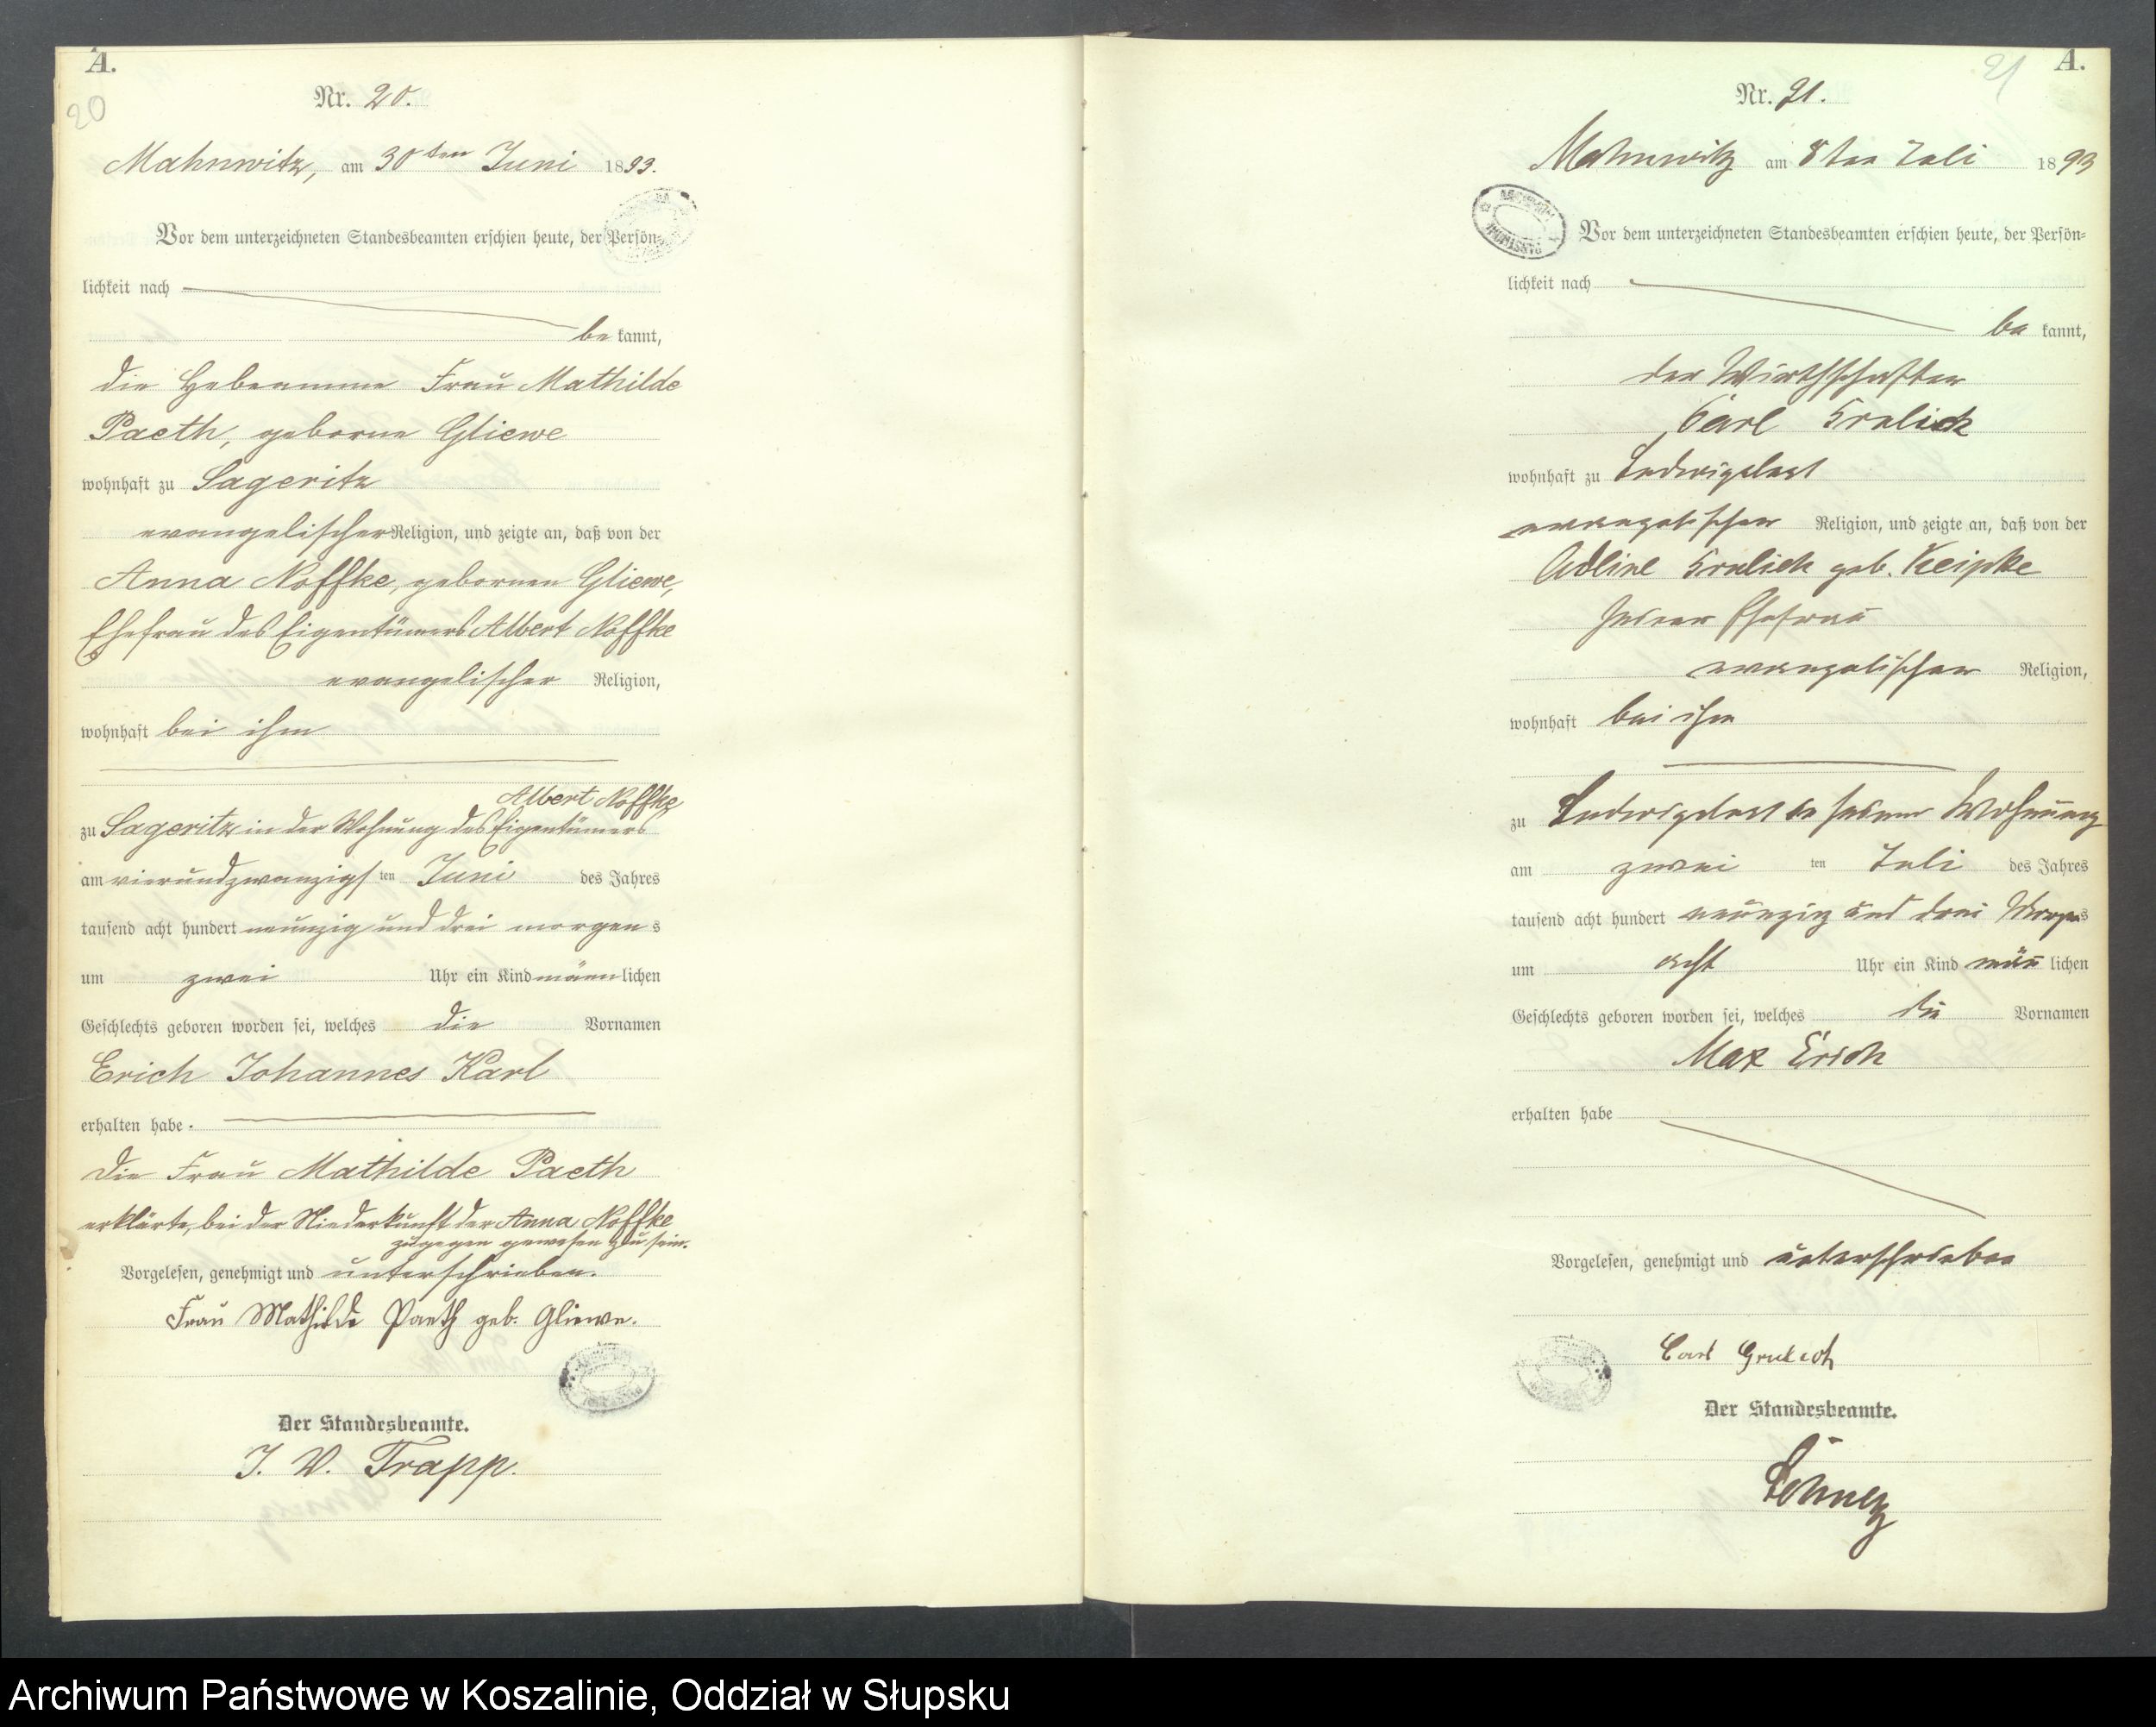 A.
20
Nr. 20.
Mahnwitz, am 30ten Juni 1893.
Vor dem unterzeichneten Standesbeamten erschien heute, der Persön-
lichkeit nach
be kannt,
die Hebeamme Frau Mathilde
Paeth, geborne Gliewe
wohnhaft zu Sageritz
evangelischer Religion, und zeigte an, daß von der
Anna Noffke, gebornen Gliewe,
Ehefrau des Eigentümers Albert Noffke
evangelischer Religion,
wohnhaft bei ihm
Albert Noffke
zu Sageritz in der Wohnung des Eigentümers
am vierundzwanzigsten Juni des Jahres
tausend acht hundert neunzig und drei morgens
um zwei Uhr ein Kind männlichen
Geschlechts geboren worden sei, welches die Vornamen
Erich Johannes Karl
erhalten habe.
Die Frau Mathilde Paeth
erklärte, bei der Niederkunft der Anna Noffke
zugegen gewesen zu sein.
Vorgelesen, genehmigt und unterschrieben.
Frau Mathilde Paeth geb. Gliewe.
Der Standesbeamte.
J. V. Trapp.
21
A.
Nr. 21.
Mahnwitz am 8ten Juli 1893
Vor dem unterzeichneten Standesbeamten erschien heute, der Persön-
lichkeit nach
be kannt,
der Wirthschafter
Carl
wohnhaft zu Ludwigslust
evangelischer Religion, und zeigte an, daß von der
geb. Keipke
seiner Ehefrau
evangelischer Religion,
wohnhaft bei ihm
zu Ludwigslust in seiner Wohnung
am zwei ten Juli des Jahres
tausend acht hundert neunzig und drei Morgens
um acht Uhr ein Kind männlichen
Geschlechts geboren worden sei, welches die Vornamen
Max Erich
erhalten habe
Vorgelesen, genehmigt und unterschrieben
Carl
Der Standesbeamte.
Archiwum Państwowe w Koszalinie, Oddział w Słupsku